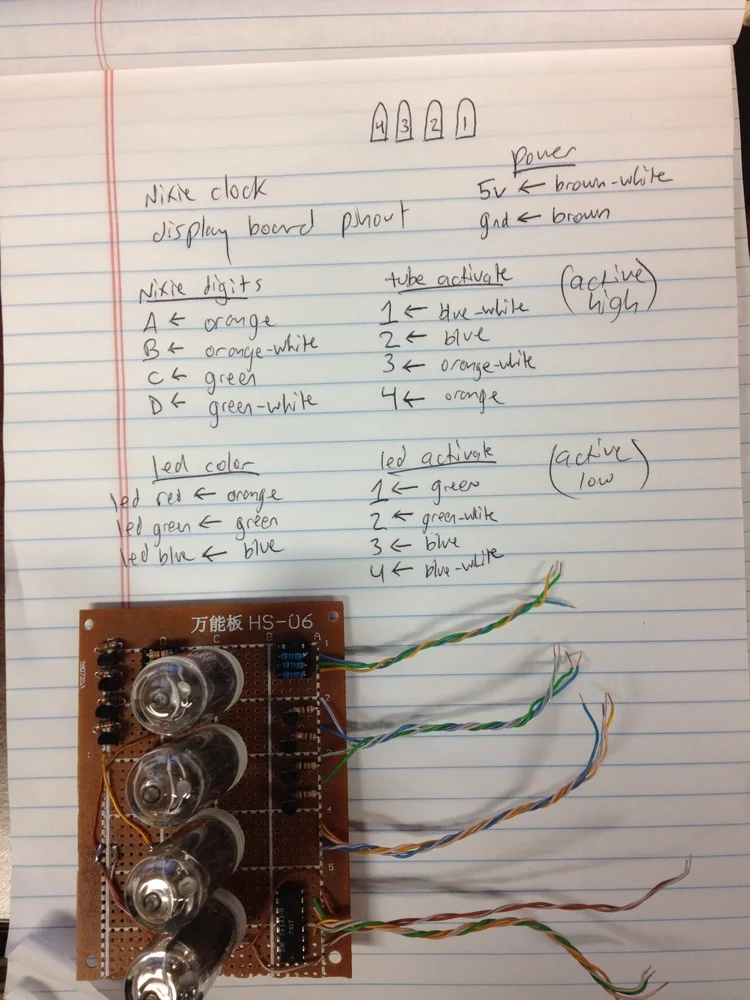 4 3 2 1
power
5v ← brown-white
gnd ← brown
Nixie clock
display board pinout
Nixie digits
A ← orange
B ← orange-white
C ← green
D ← green-white
tube activate
(active high)
1 ← blue-white
2 ← blue
3 ← orange-white
4 ← orange
led color
led red ← orange
led green ← green
led blue ← blue
led activate
(active low)
1 ← green
2 ← green-white
3 ← blue
4 ← blue-white
万能板 HS-06
D C B A
1
2
4
5